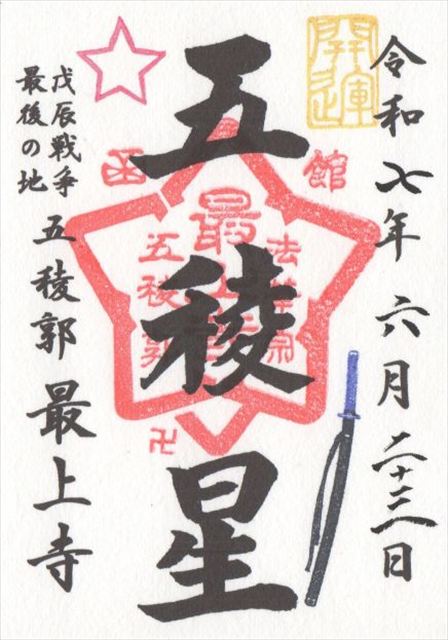 開運
令和七年 六月二十三日
五稜星
函館
五稜郭
卍
戊辰戦争
最後の地
五稜郭 最上寺